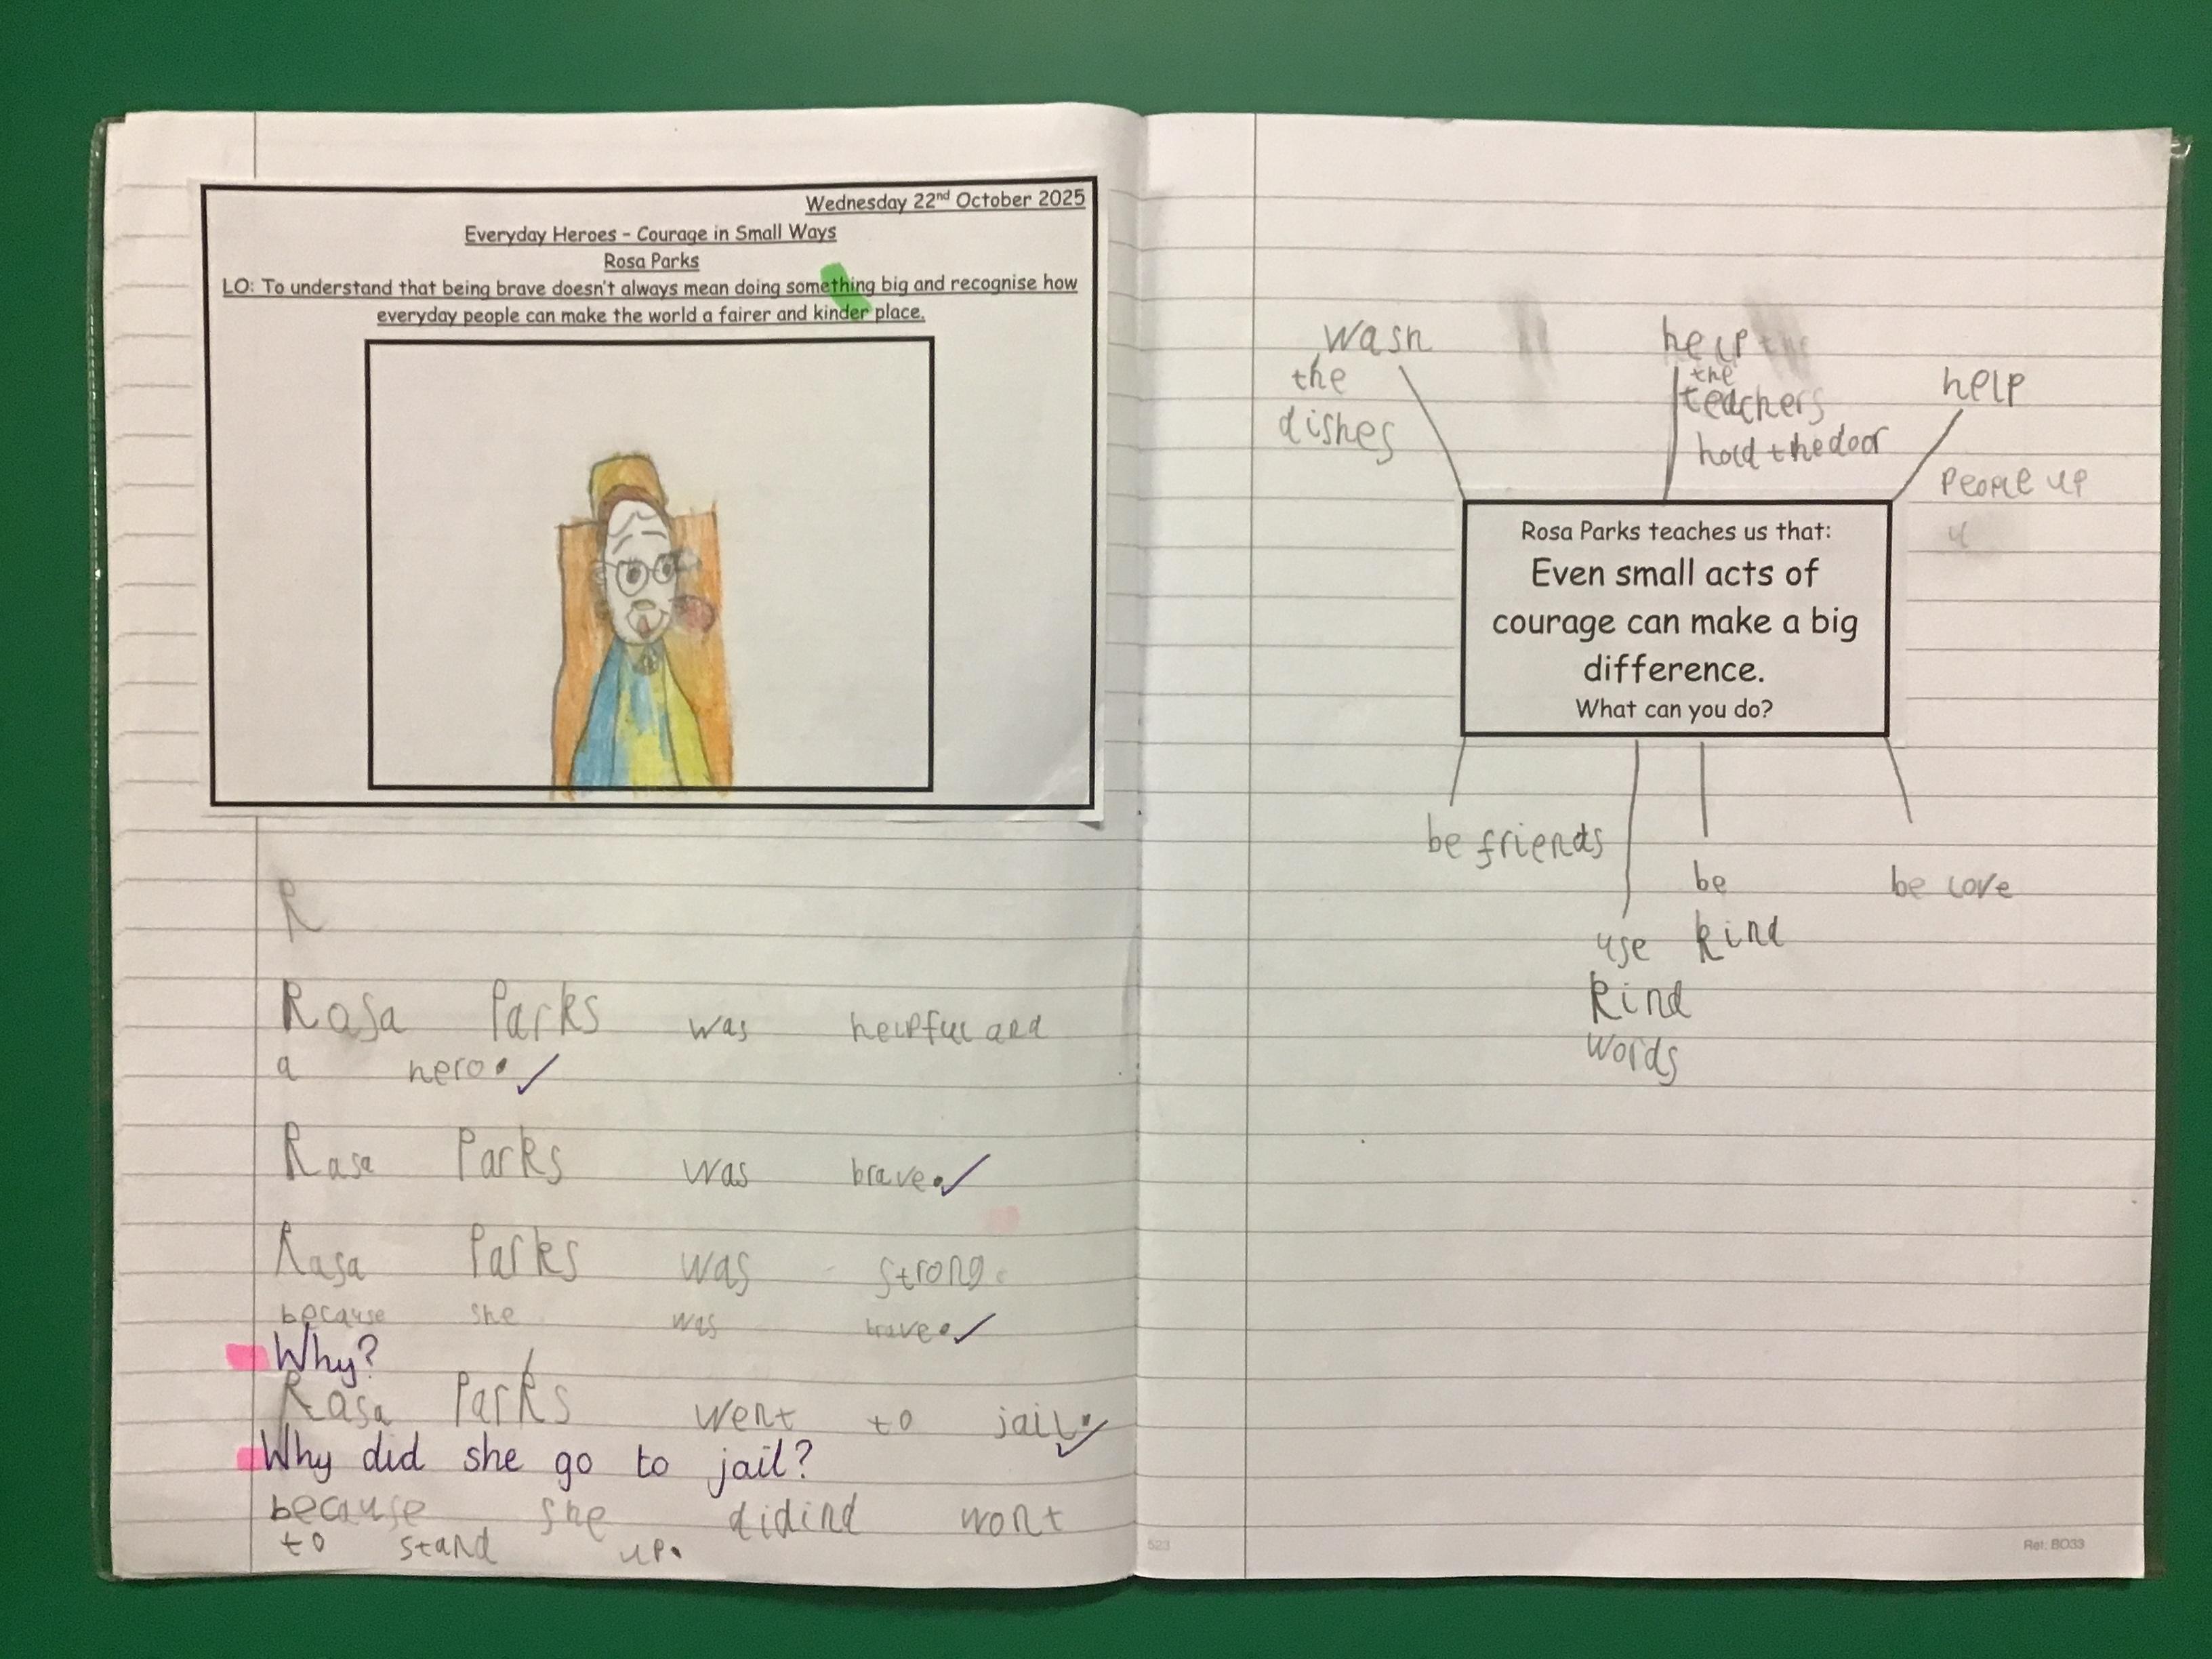 Wednesday 22nd October 2025
Everyday Heroes - Courage in Small Ways
Rosa Parks
LO: To understand that being brave doesn't always mean doing something big and recognise how
everyday people can make the world a fairer and kinder place.
R
Rosa Parks was helpful and
a hero.
Rasa Parks was brave.
Rasa Parks was strong.
because she was brave.
Why?
Rasa Parks went to jail.
Why did she go to jail?
because she didind wont
to stand up.
wash
the
dishes
help
the
teachers
hold the door
help
people up
Rosa Parks teaches us that:
Even small acts of
courage can make a big
difference.
What can you do?
be friends
use
kind
words
be
kind
be love
523
Ref: BD33